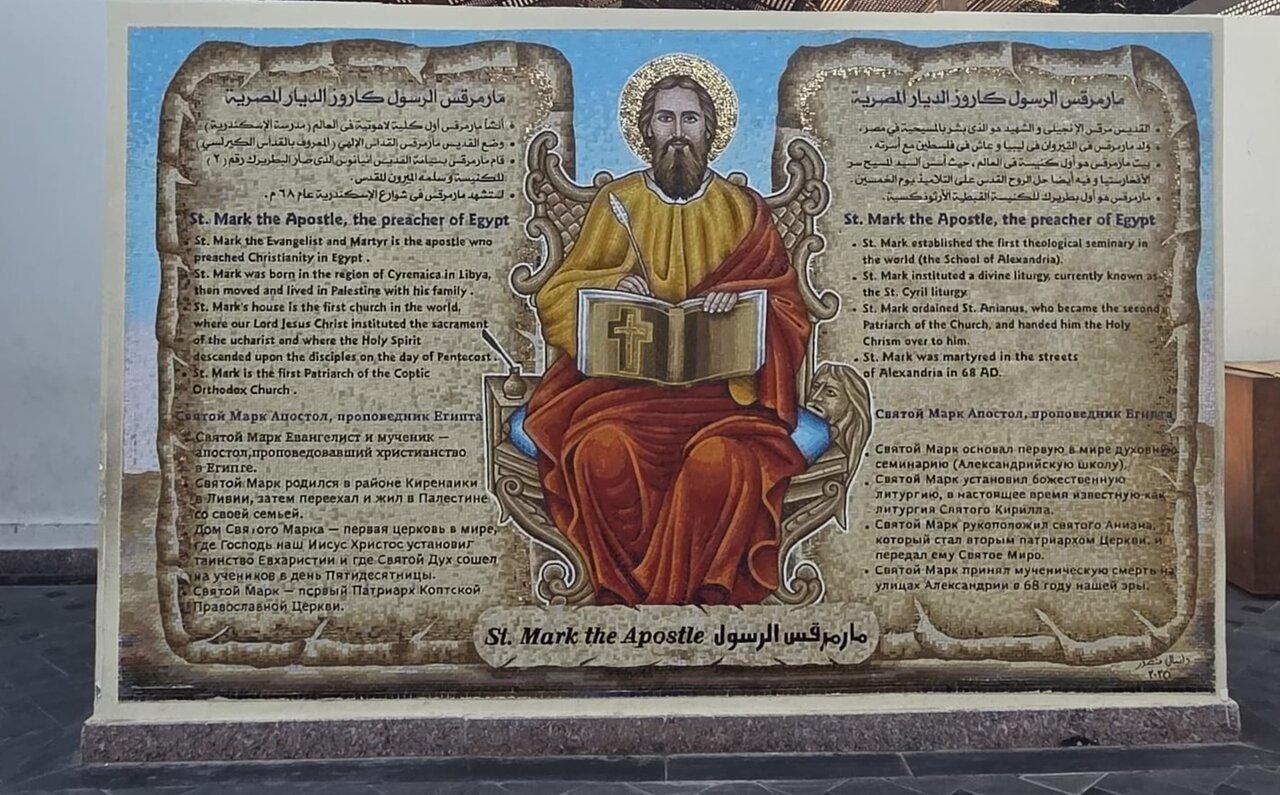 مارمرقس الرسول كاروز الديار المصرية
• أنشأ مارمرقس أول كلية لاهوتية فى العالم (مدرسة الإسكندرية)
• وضع القديس مارمرقس القداس الإلهي (المعروف بالقداس الكيرلسي)
• قام مارمرقس بسيامة القديس انيانوس الذى صار البطريرك رقم (٢)
للكنيسة و سلمه الميرون المقدس.
• استشهد مارمرقس فى شوارع الإسكندرية عام ٦٨ م.
St. Mark the Apostle, the preacher of Egypt
• St. Mark the Evangelist and Martyr is the apostle who
preached Christianity in Egypt .
• St. Mark was born in the region of Cyrenaica in Libya,
then moved and lived in Palestine with his family .
• St. Mark's house is the first church in the world,
where our Lord Jesus Christ instituted the sacrament
of the ucharist and where the Holy Spirit
descended upon the disciples on the day of Pentecost.
• St. Mark is the first Patriarch of the Coptic
Orthodox Church .
Святой Марк Апостол, проповедник Египта
• Святой Марк Евангелист и мученик —
апостол,проповедовавший христианство
в Египте.
• Святой Марк родился в районе Киренаики
в Ливии, затем переехал и жил в Палестине
со своей семьей.
• Дом Святого Марка — первая церковь в мире,
где Господь наш Иисус Христос установил
таинство Евхаристии и где Святой Дух сошел
на учеников в день Пятидесятницы.
• Святой Марк — первый Патриарх Коптской
Православной Церкви.
مارمرقس الرسول كاروز الديار المصرية
• القديس مرقس الإنجيلى و الشهيد هو الذى بشر بالمسيحية فى مصر.
• ولد مارمرقس فى القيروان فى ليبيا و عاش فى فلسطين مع أسرته.
• بيت مارمرقس هو أول كنيسة فى العالم ، حيث أسس السيد المسيح سر
الأفخارستيا و فيه أيضا حل الروح القدس على التلاميذ يوم الخمسين.
• مارمرقس هو أول بطريرك للكنيسة القبطية الأرثوذكسية.
St. Mark the Apostle, the preacher of Egypt
• St. Mark established the first theological seminary in
the world (the School of Alexandria).
• St. Mark instituted a divine liturgy, currently known as
the St. Cyril liturgy
• St. Mark ordained St. Anianus, who became the second
Patriarch of the Church, and handed him the Holy
Chrism over to him.
• St. Mark was martyred in the streets
of Alexandria in 68 AD.
Святой Марк Апостол, проповедник Египта
• Святой Марк основал первую в мире духовную
семинарию (Александрийскую школу).
• Святой Марк установил божественную
литургию, в настоящее время известную как
литургия Святого Кирилла.
• Святой Марк рукоположил святого Аниана,
который стал вторым патриархом Церкви, и
передал ему Святое Миро.
• Святой Марк принял мученическую смерть на
улицах Александрии в 68 году нашей эры.
St. Mark the Apostle مارمرقس الرسول
دانيال منصور
٢٠٢٥